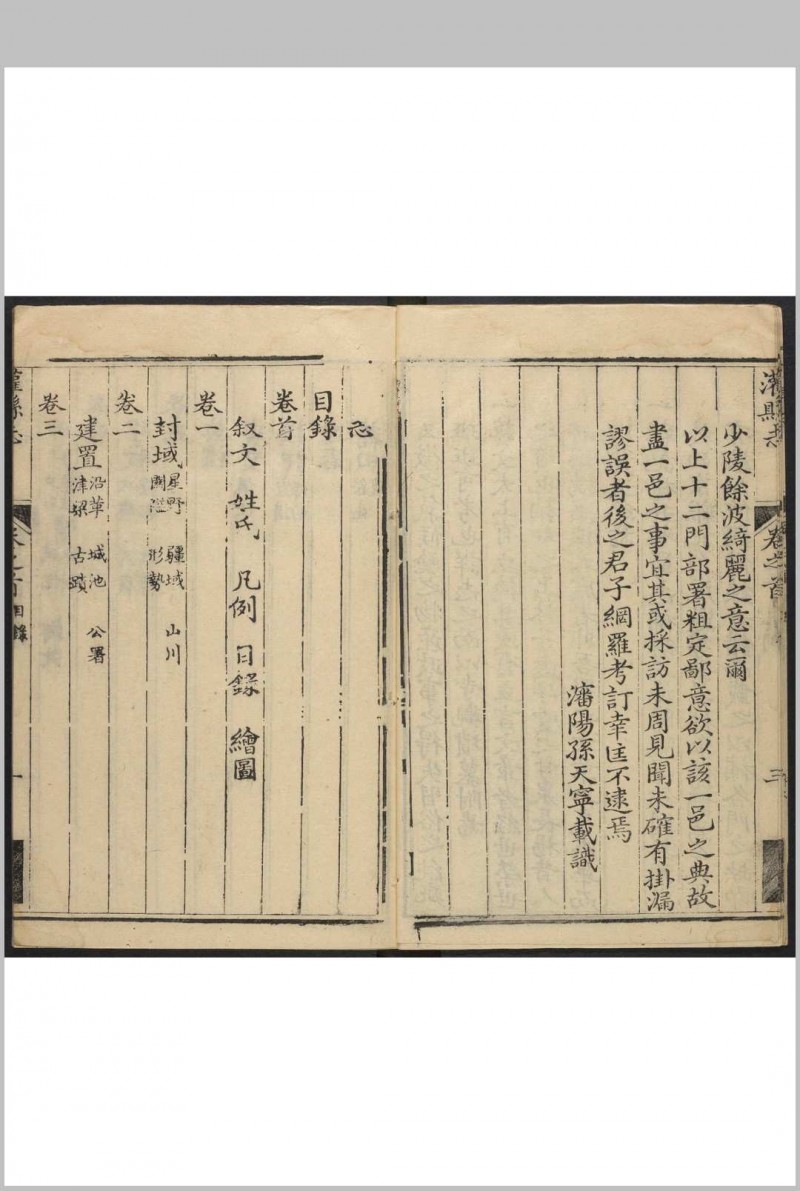 少陵餘波綺麗之意云爾
以上十二門部署粗定鄙意欲以該一邑之典故
盡一邑之事宜其或採訪未周見聞未確有掛漏
謬誤者後之君子網羅考訂幸匡不逮焉
瀋陽孫天寧載識
志
目錄
卷首
叙文 姓氏 凡例 目錄 繪圖
卷一
封域 星野 疆域 山川
關隘 形勢
卷二
建置 沿革 城池 公署
津梁 古蹟
卷三
縣志
目錄
一
縣志
卷之首
三